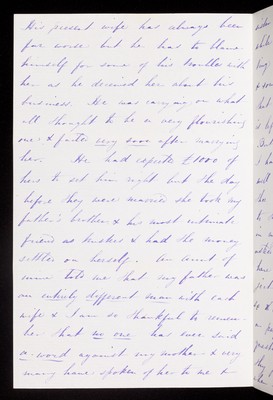 His present wife has always been
far worse but he has to blame
himself for some of his troubles with
her as he deceived her about his
business. He was carrying on what
all thought to be a very flourishing
one & failed very soon after marrying
her. He had expected £1000 of
hers to set him right but the day
before they were married she took my
father's brother & his most intimate
friend as trustees & had the money
settled on herself. An aunt of
mine told me that my father was
an entirely different man with each
wife & I am so thankful to remember
her that no one has ever said
a word against my mother & very
many have spoken of her to me &